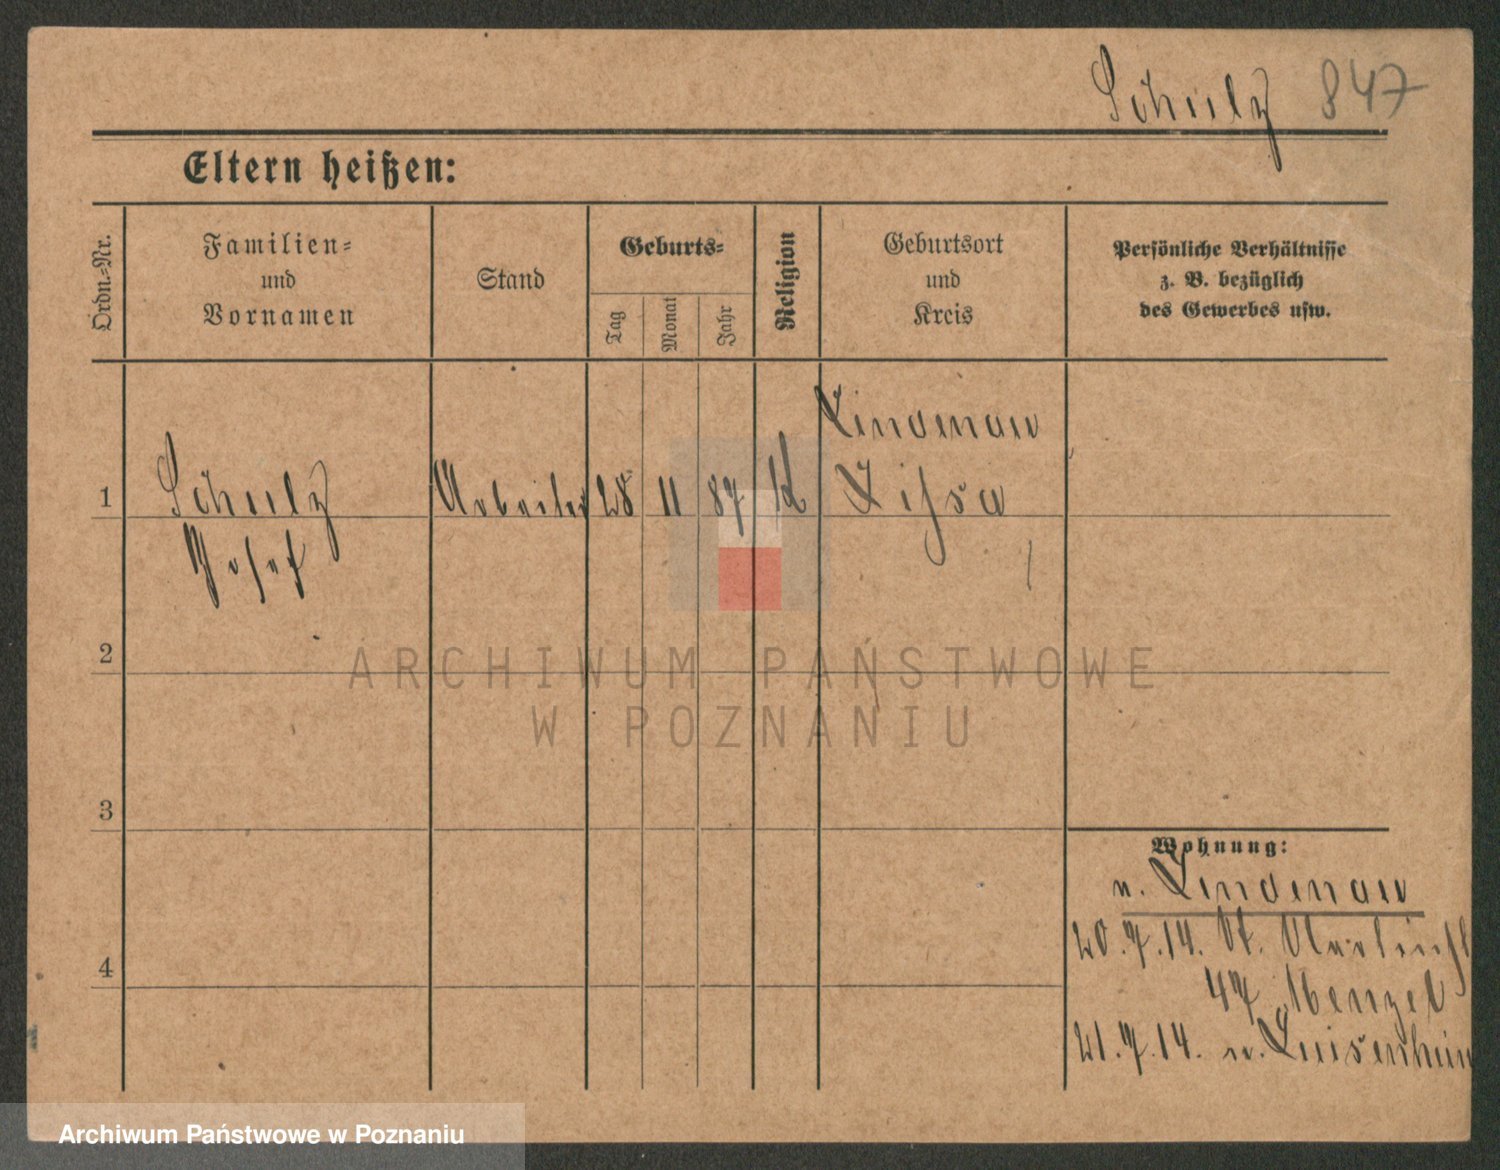 Schulz 847
Eltern heißen:
Ordn.-Nr.
Familien-
und
Vornamen
Stand
Geburts-
Tag
Monat
Jahr
Religion
Geburtsort
und
Kreis
Persönliche Verhältnisse
z. B. bezüglich
des Gewerbes usw.
Lindenau
1 Schulz Arbeiter 28 11 87 K Lissa
Josef
2
ARCHIWUM PAŃSTWOWE
W POZNANIU
3
Wohnung:
n. Lindenau
20.7.14. St.
4
47 Menzel
21.7.14. n. Luisenhain
Archiwum Państwowe w Poznaniu